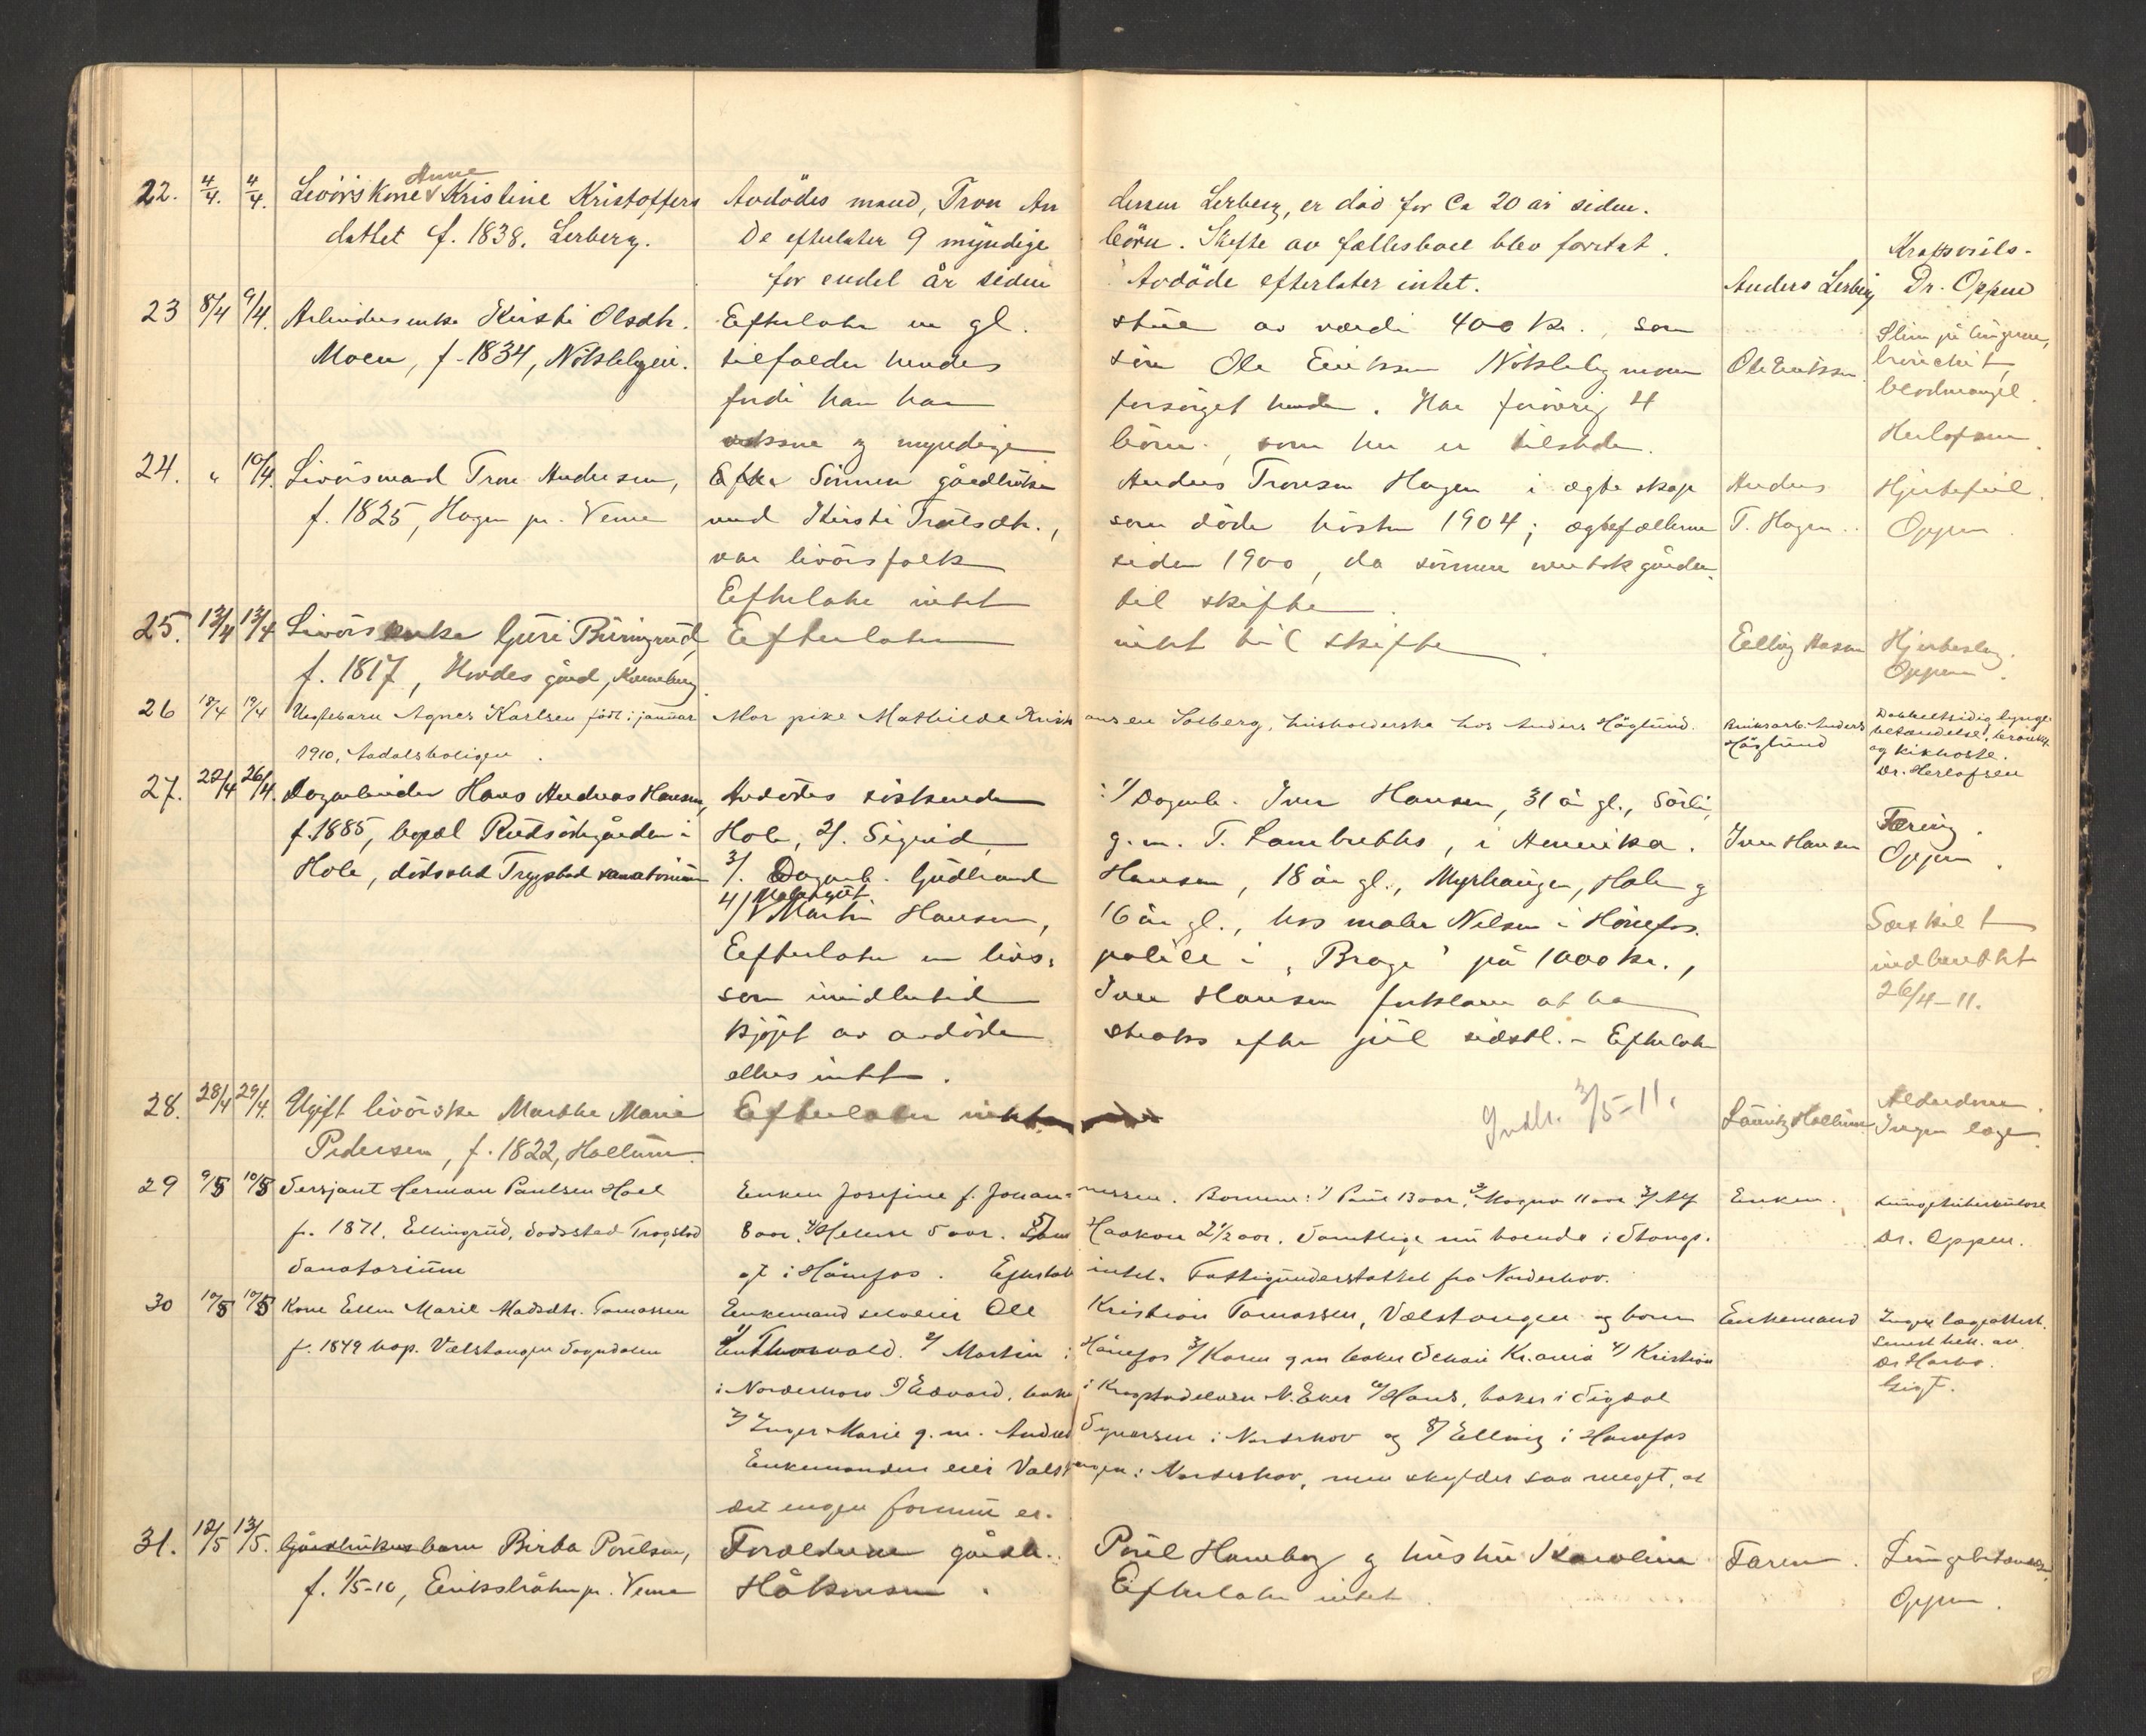 22. 4/4. 4/4. Livörskone Anne Kristine Kristoffers Avdödes mand, Tron An dersen Lerberg, er död for ca 20 år siden.
dattet f. 1838. Lerberg. De efterlater 9 myndige börn. Skifte av fællesboet blev foretat
for endel år siden Avdöde efterlater intet. Anders Lerberg Kræftsvuls- Dr. Oppen
23 8/4 9/4. Arbeidersenke Kirsti Olsdtr. Efterlater en gl. stue av værdi 400 kr., som Slim på lungerne,
Moen, f. 1834, Nökleby tilfalder hendes sön Ole Eriksen Nökleby Ole Eriksen bronchit,
fordi han har forsörget hende. Har forövrig 4 blodmangel.
voksne og myndige börn, som her er tilstede. Herlofsen
24. " 10/4. Livörsmand Tron Andersen, Efter Sönnen gårdbruker Anders Tronsen Hagen i ægteskap Anders Hjertefeil.
f. 1825, Hagen pr. Veme med Kirsti Trulsdtr., som döde hösten 1904; ægtefællerne T. Hagen. Oppen
var livörsfolk siden 1900, da sönnen overtok gården.
Efterlater intet til skifte
25. 13/4 13/4 Livörsenke Guri Buringrud, Efterlater intet til skifte. Hjerteslag.
f. 1817, gård, Oppen
26 18/4 19/4 Uegtebarn Agnes Karlsen född i januar Mor pike Mathilde Kristi ansen Solberg, husholderske hos Anders Höglund. Bruksarb. Anders Dobbeltsidig lunge-
1910, Aadalsboligen. Höglund betændelse, bronkit
og kikhoste.
Dr. Herlofsen
27. 22/4 26/4. Dagarbeider Hans Andreas Hansen, Avdödes söskende: 1/ Dagarb. Iver Hansen, 31 år gl., Sörli,
f. 1885, bopæl Rudsödegården i Hole, 2/. Sigrid, g.m. T. Lambrechts, i Amerika. Iver Hansen Tæring.
Hole, dödssted Trygstad sanatorium 3/. Dagarb. Gudbrand Hansen, 18 år gl., Myrhaugen, Hole og Oppen.
4/ Malergut Martin Hansen, 16 år gl., hos maler Nilsen i Hönefos. Særskilt
Efterlater en livs- police i "Brage" på 1000 kr., indberettet
som imidlertid Iver Hansen forklarer at ha 26/4-11.
kjöpt av avdöde straks efter jul sidstl. - Efterlater
ellers intet.
28. 28/4 29/4. Ugift livörske Marthe Marie Efterlater intet Indb. 3/5-11. Lauritz Hallum Alderdom.
Pedersen, f. 1822, Hallum. Ingen læge.
29 9/5 10/5 Sersjant Herman Paulsen Hoel Enken Josefine f. Johan- nessen. Bornene: 1/ Paul 13 aar, 2/ Magna 11 aar 3/ Alf Enken. Lungetuberkulose
f. 1871. Ellingrud, dodsstad Trogstad 8 aar, 4/ Helene 5 aar. 5/ Haakon 2½ aar. Samtlige nu boende i Stangs- Dr. Oppen.
Sanatorium gt. i Hönefos. Efterlat intet. Fattigunderstottet fra Norderhov.
30 10/5 10/5 Kone Ellen Marie Madsdtr. Tomassen Enkemand selveier Ole Kristian Tomassen, Vælstangen og born Enkemand Ingen lægeattest.
f. 1849 bop. Vælstangen Sogndalen 1/ Thorvald. 2/ Martin i Hönefos 3/ Karen g.m. baker Kr.ania 4/ Kristian Senest beh. av
i Norderhov 5/ Edvard, baker i Krogstadelven N. Eker 6/ Hans, baker i Sigdal Dr Harbo.
7/ Inger Marie g.m. Andreas i Norderhov og 8/ Elling i Hönefos Gigt.
Enkemanden eier Vælst angen i Norderhov, men skylder saa meget, at
det ingen formue er.
31. 12/5 13/5. Gårdbrukerbarn Birta Poulsen, Forældrene gårdb. Poul Haneberg og hustru Karoline Faren. Lungebetændelse.
f. 1/5-10, Eriksbråten pr. Veme Håkonsen. Efterlater intet. Oppen.